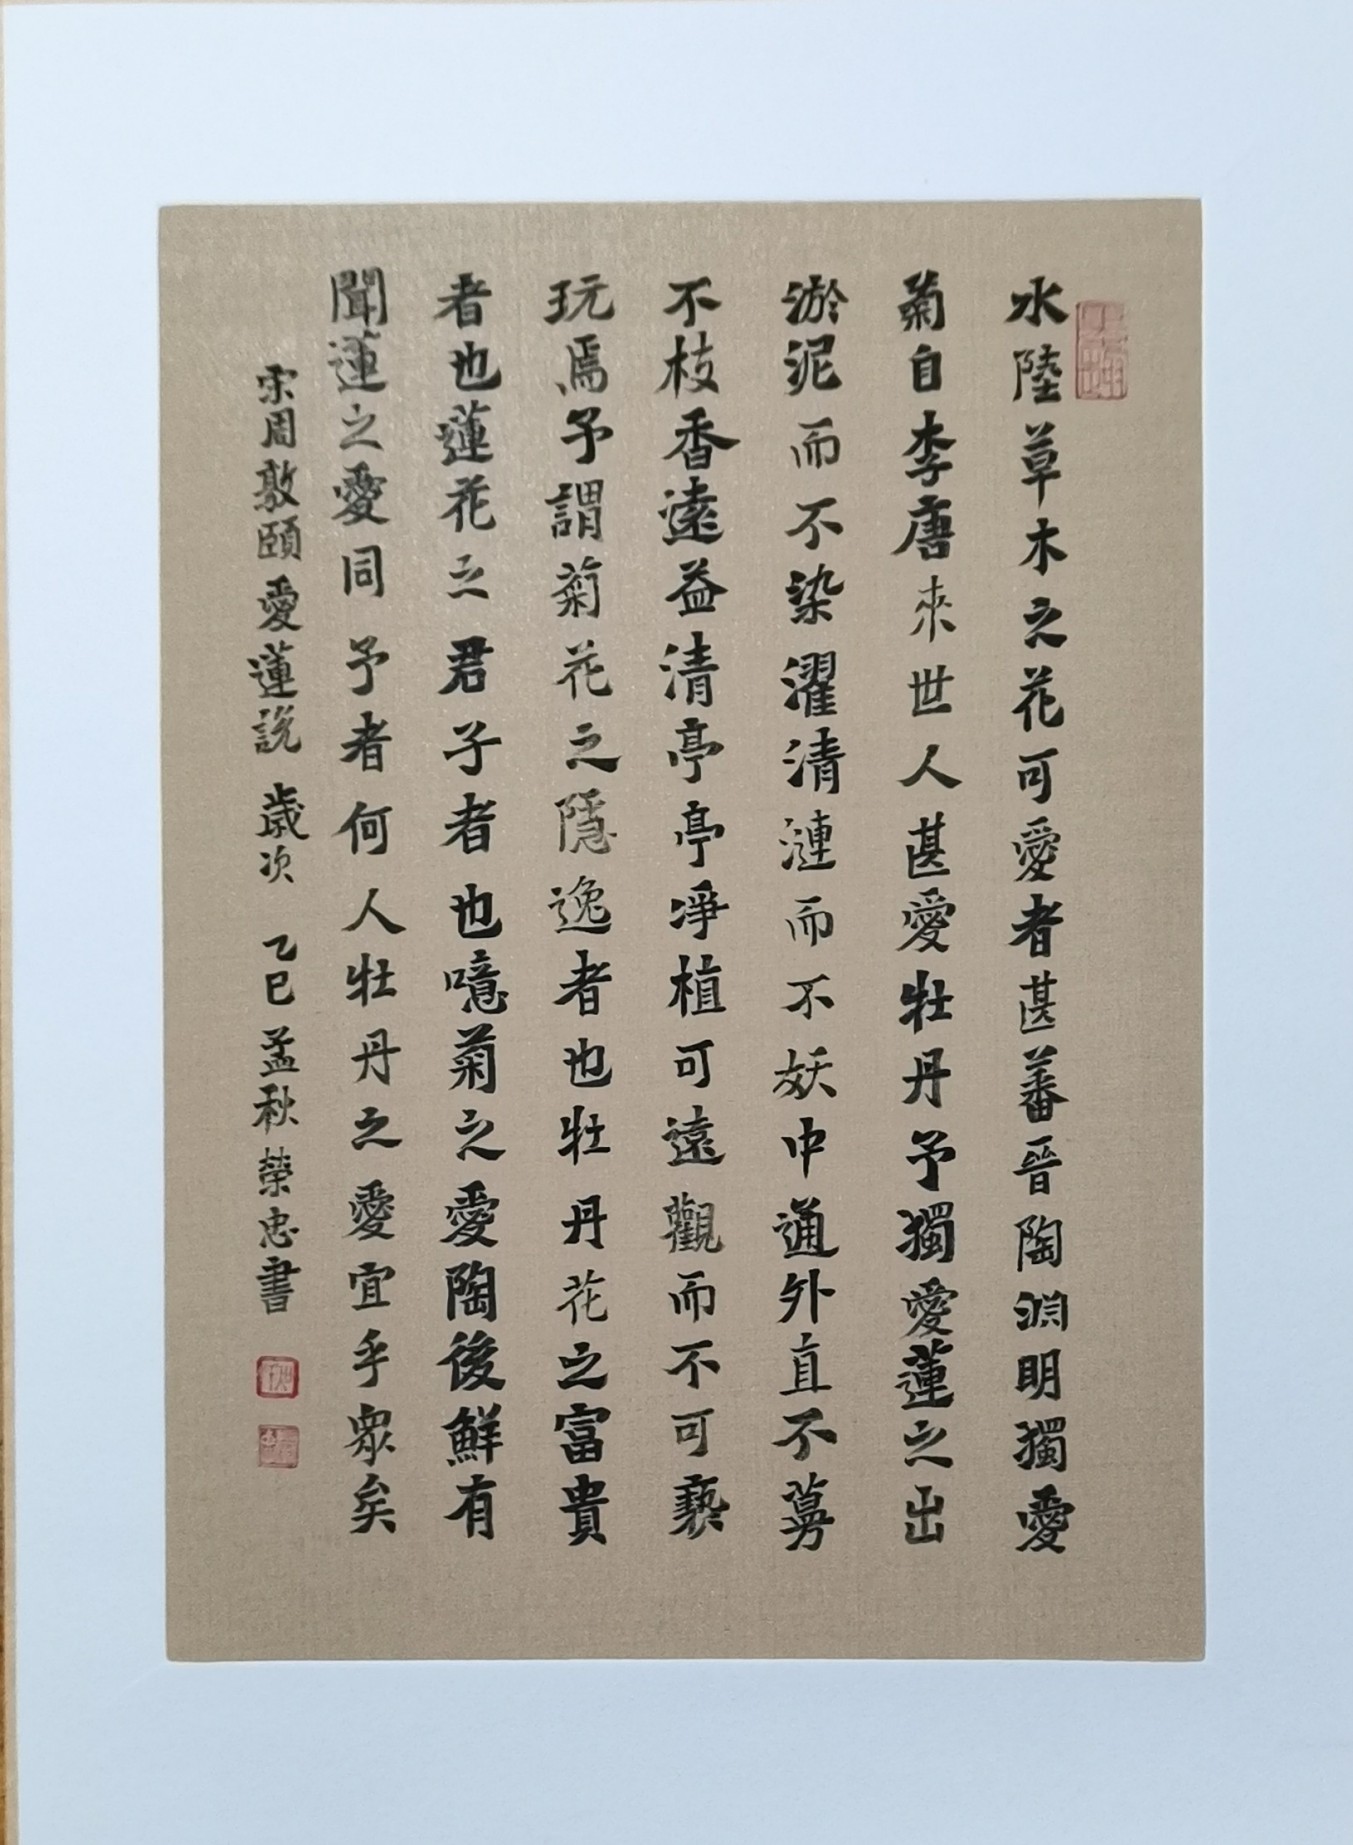 水陸草木之花可愛者甚蕃晉陶淵明獨愛
菊自李唐來世人甚愛牡丹予獨愛蓮之出
淤泥而不染濯清漣而不妖中通外直不蔓
不枝香遠益清亭亭凈植可遠觀而不可褻
玩焉予謂菊花之隱逸者也牡丹花之富貴
者也蓮花之君子者也噫菊之愛陶後鮮有
聞蓮之愛同予者何人牡丹之愛宜乎眾矣
宋周敦頤愛蓮說 歲次 乙巳孟秋榮忠書